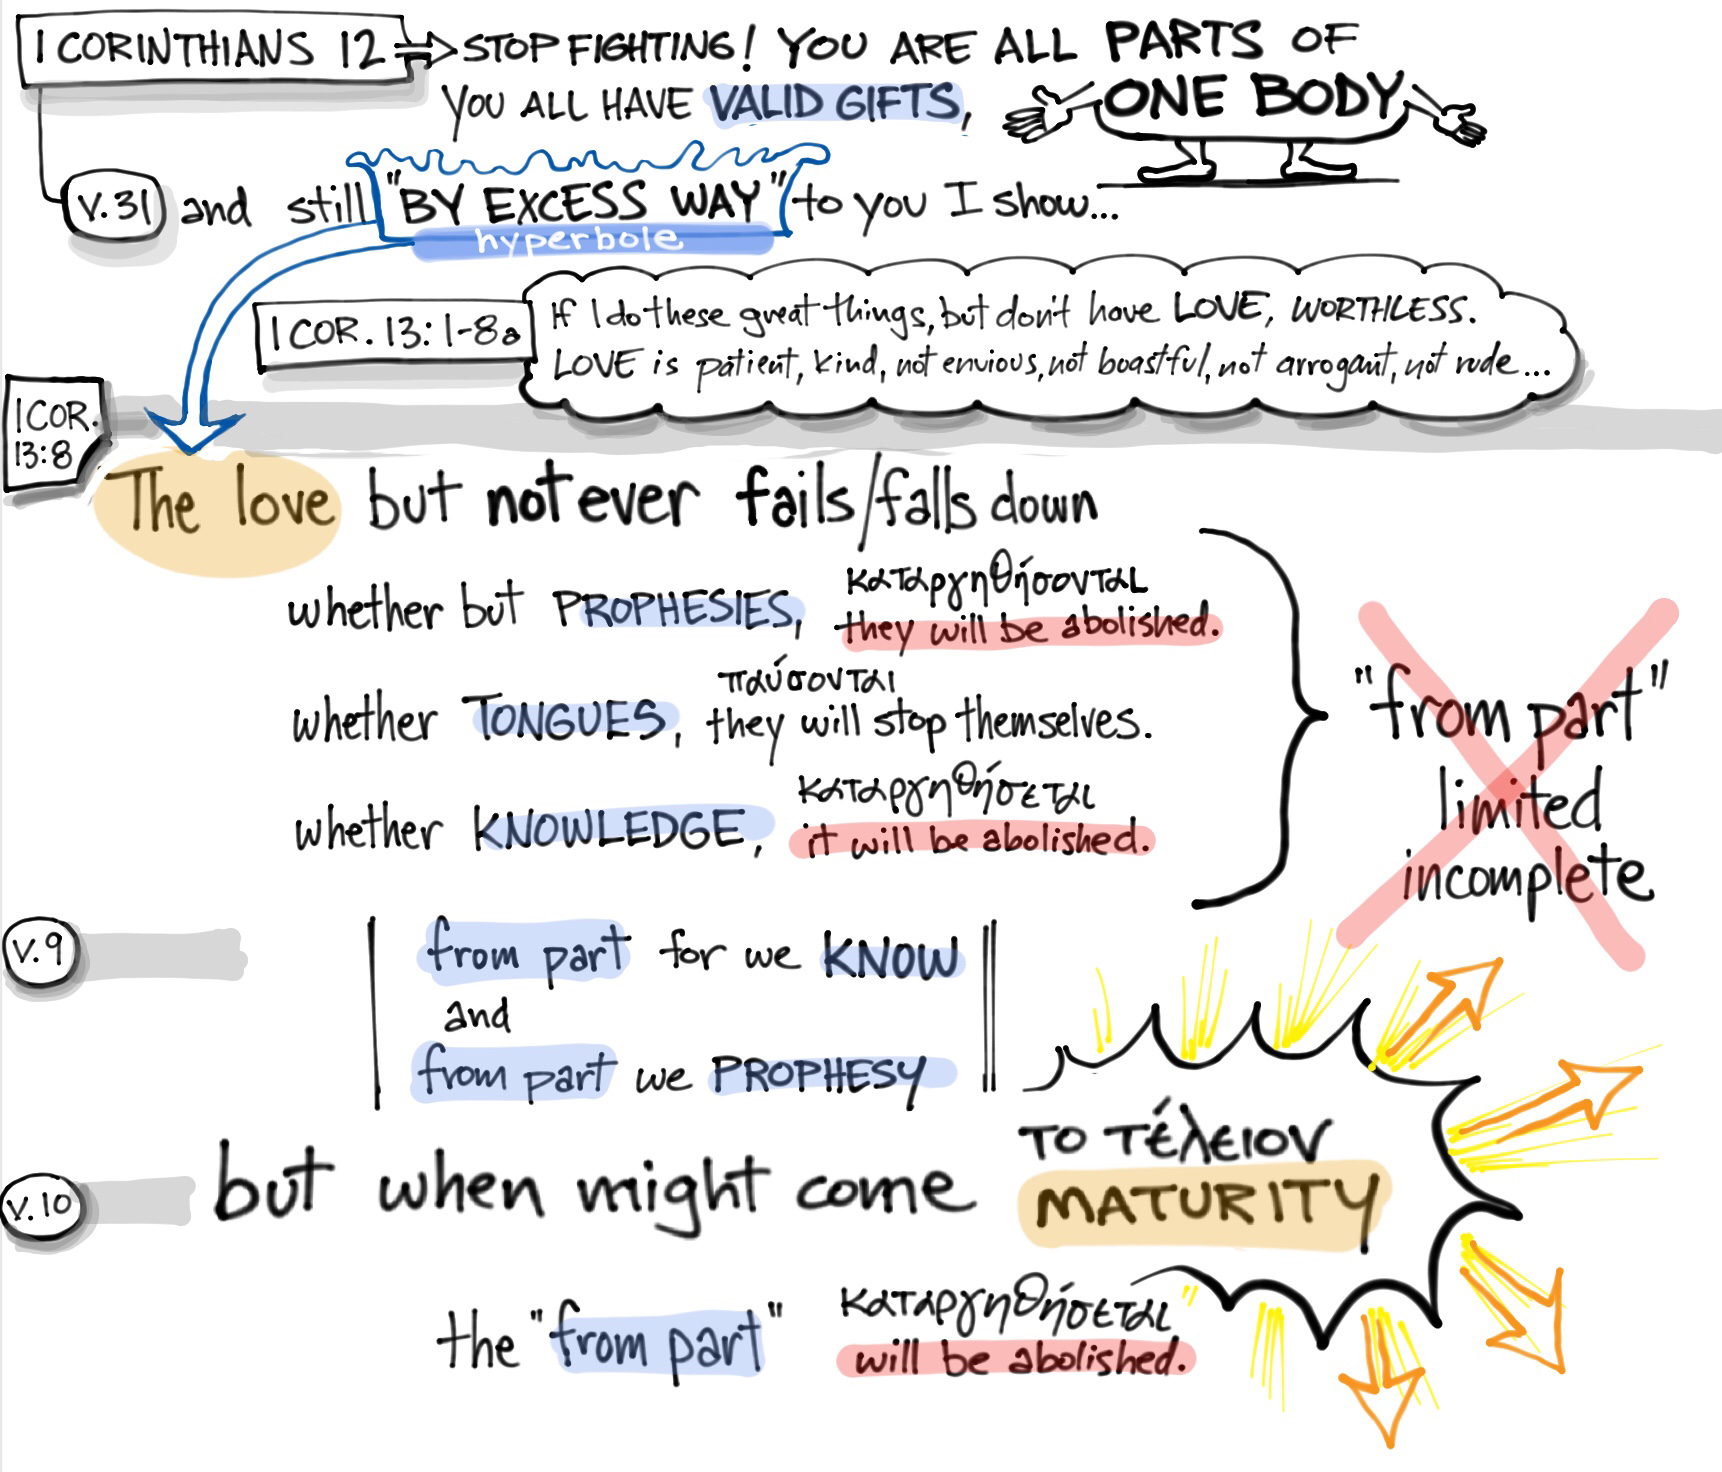 1 CORINTHIANS 12
STOP FIGHTING! YOU ARE ALL PARTS OF
YOU ALL HAVE VALID GIFTS, ONE BODY
v.31 and still "BY EXCESS WAY" to you I show...
hyperbole
1 COR. 13:1-8a
If I do these great things, but don't have LOVE, WORTHLESS.
LOVE is patient, kind, not envious, not boastful, not arrogant, not rude...
1 COR.
13:8
The love but not ever fails/falls down
καταργηθήσονται
whether but PROPHESIES, they will be abolished.
παύσονται
whether TONGUES, they will stop themselves.
καταργηθήσεται
whether KNOWLEDGE, it will be abolished.
"from part"
limited
incomplete
v.9
from part for we KNOW
and
from part we PROPHESY
το τέλειον
v.10 but when might come MATURITY
καταργηθήσεται
the "from part" will be abolished.